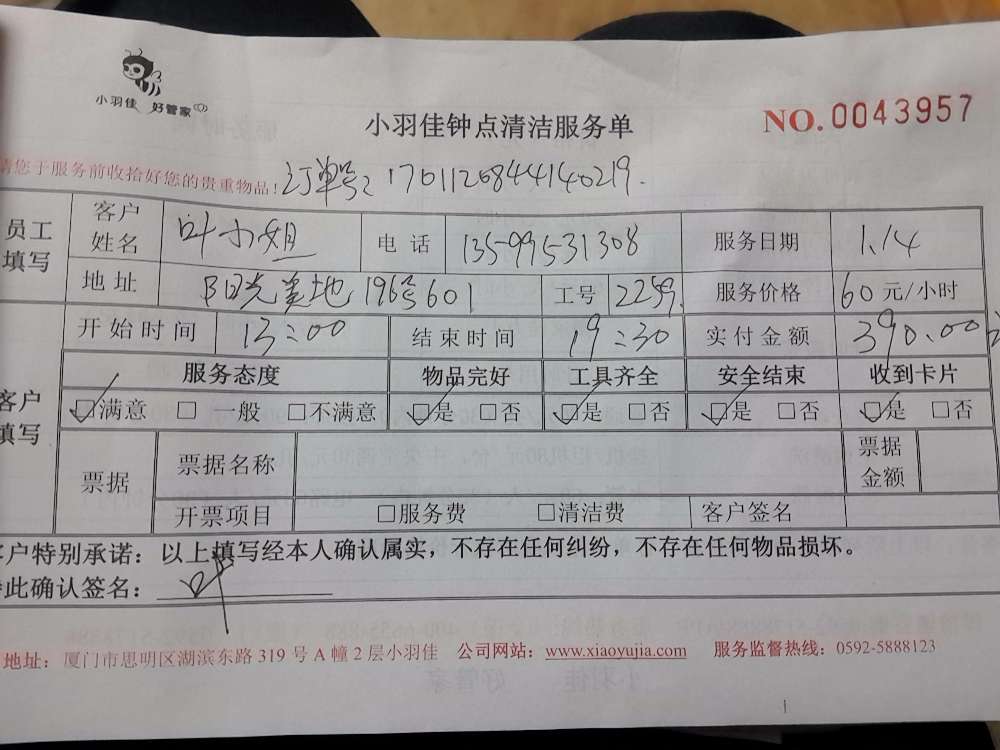 小羽佳 好管家
小羽佳钟点清洁服务单
NO.0043957
请您于服务前收拾好您的贵重物品！订单号：1701120844140219.
员工填写 客户姓名 叶小姐 电话 13599531308 服务日期 1.14
地址 阳光美地196号601 工号 2259 服务价格 60元/小时
开始时间 13:00 结束时间 19:30 实付金额 390.00
客户填写 服务态度 物品完好 工具齐全 安全结束 收到卡片
☑满意 □一般 □不满意 ☑是 □否 ☑是 □否 ☑是 □否 ☑是 □否
票据 票据名称 票据金额
开票项目 □服务费 □清洁费 客户签名
客户特别承诺：以上填写经本人确认属实，不存在任何纠纷，不存在任何物品损坏。
此确认签名：叶
地址：厦门市思明区湖滨东路319号A幢2层小羽佳 公司网站：www.xiaoyujia.com 服务监督热线：0592-5888123